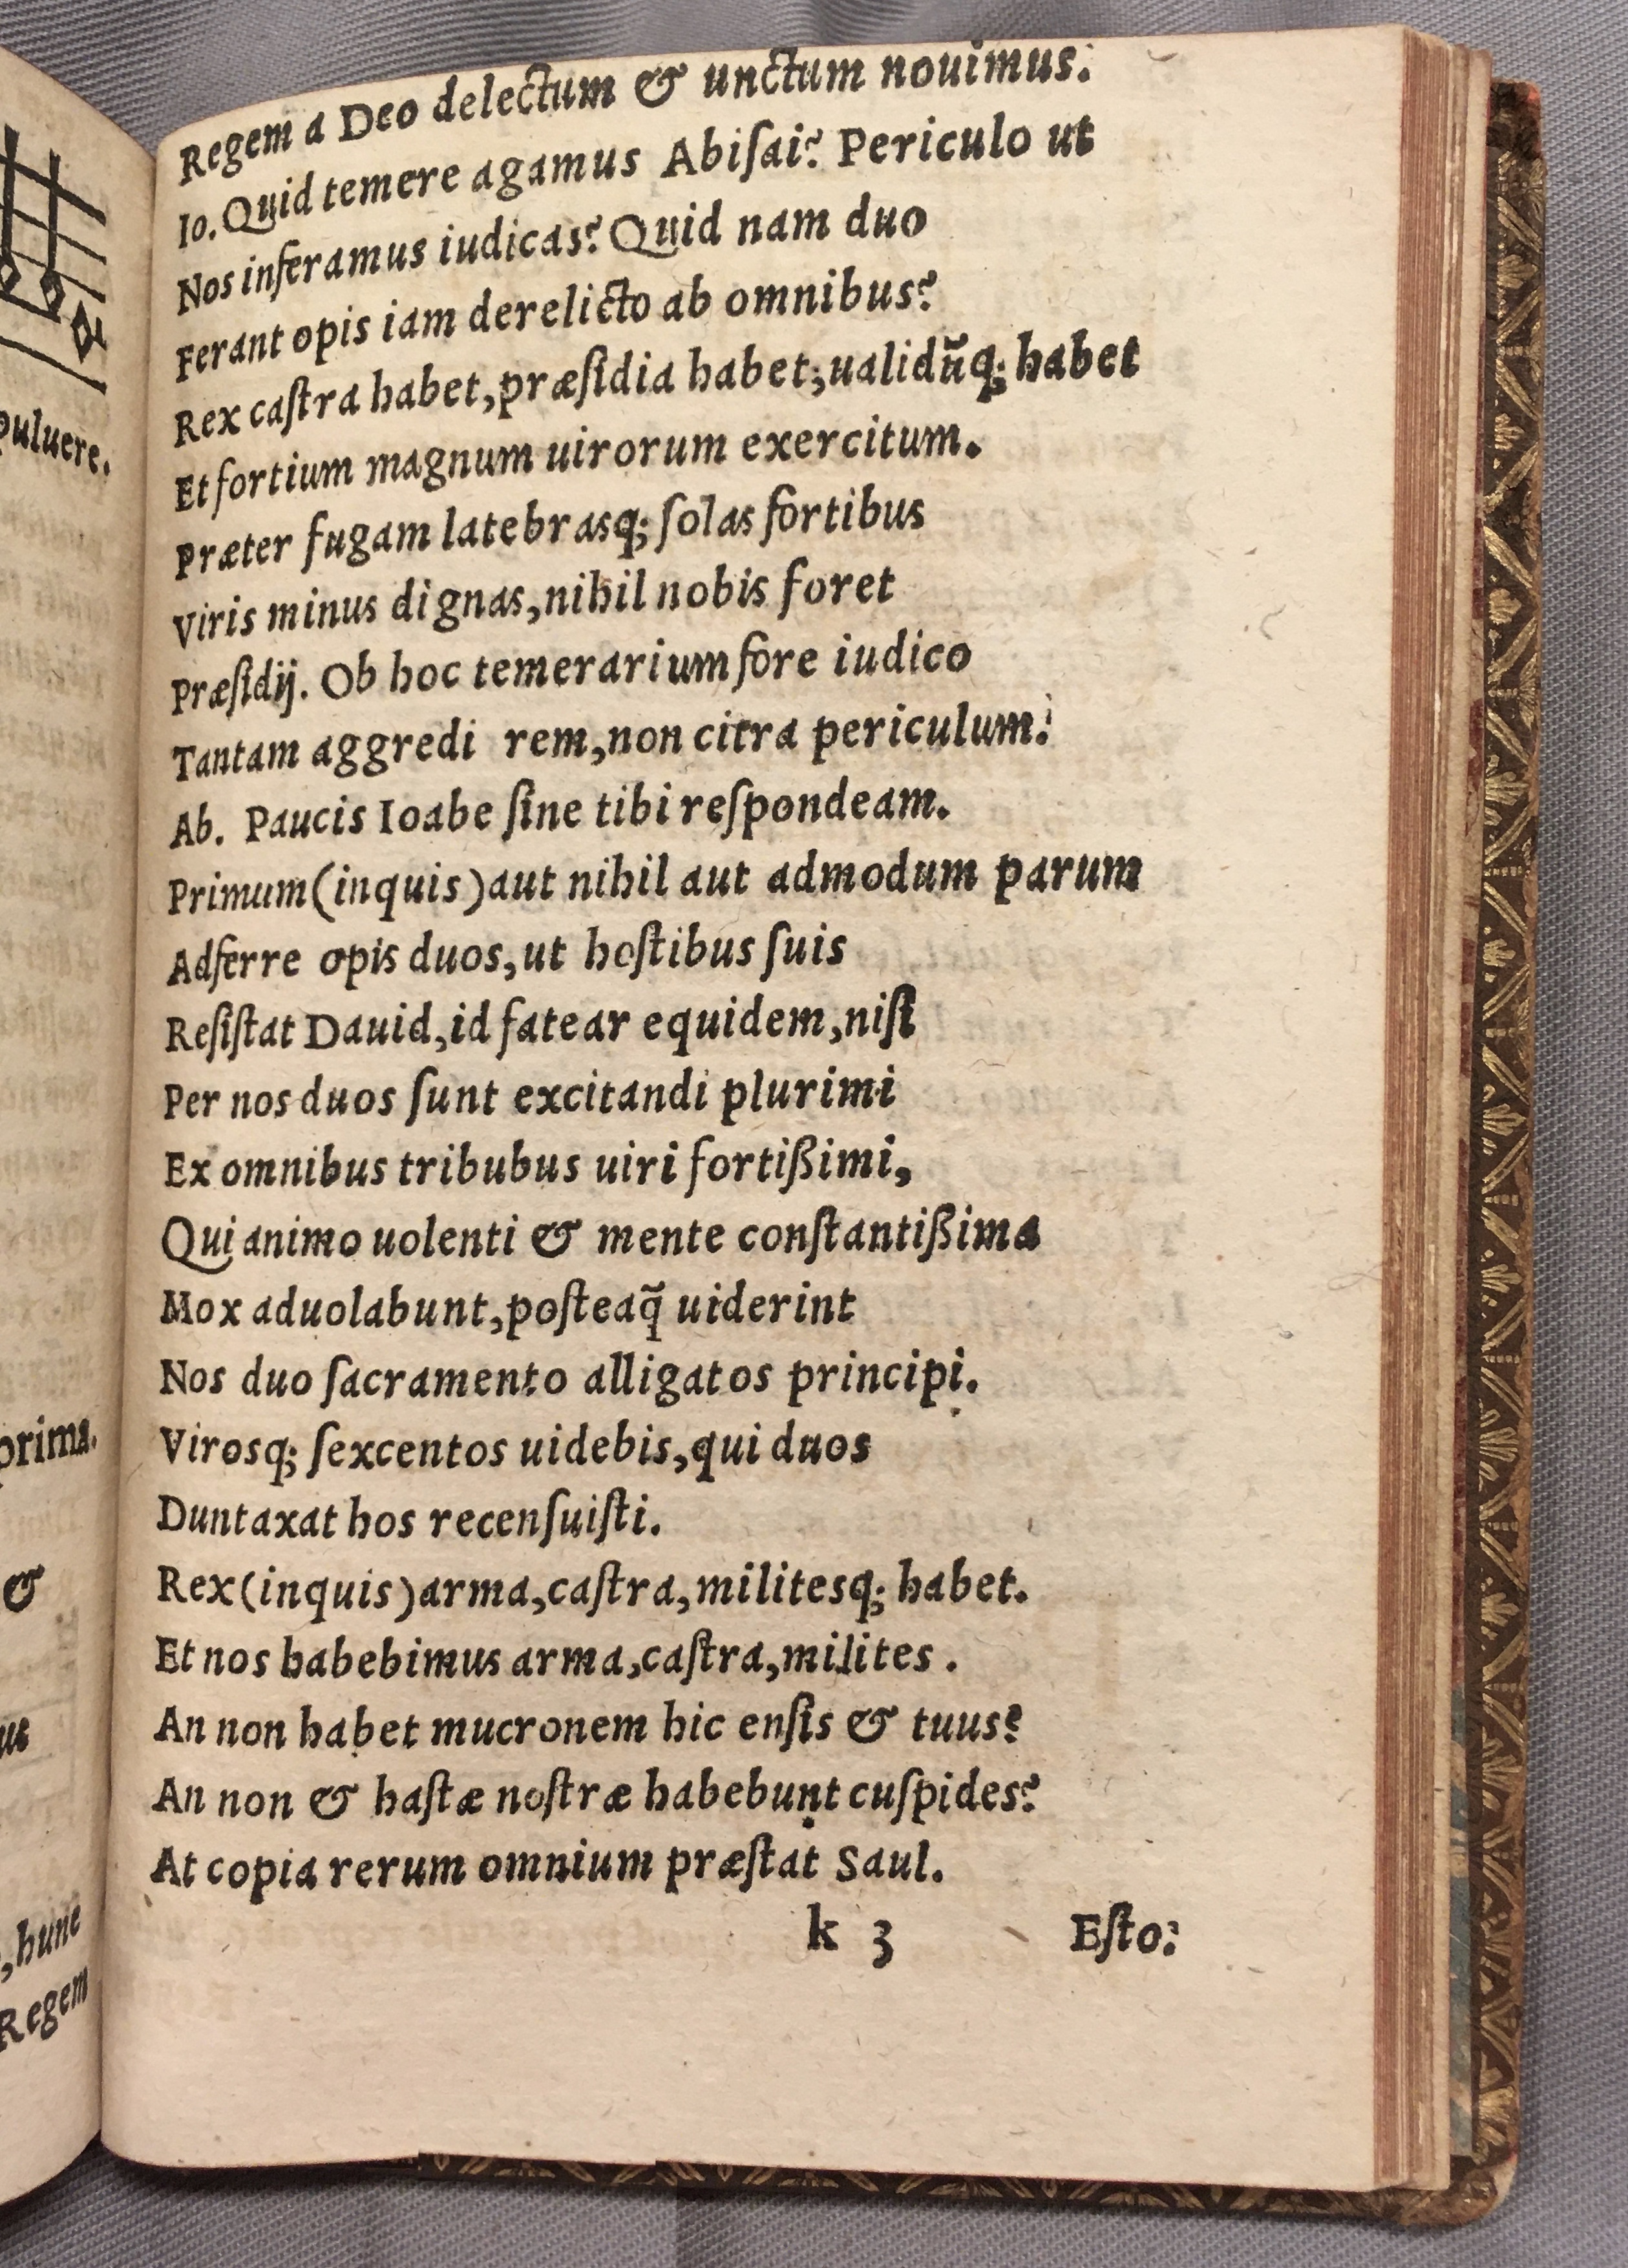 puluere.
prima.
&
ut
, hunc
Regem
Regem a Deo delectum & unctum nouimus.
Io. Quid temere agamus Abiſai? Periculo ut
Nos inferamus iudicas? Quid nam duo
Ferant opis iam derelicto ab omnibus?
Rex caſtra habet, præſidia habet; ualidũq; habet
Et fortium magnum uirorum exercitum.
Præter fugam latebrasq; ſolas fortibus
Viris minus dignas, nihil nobis foret
Præſidij. Ob hoc temerarium fore iudico
Tantam aggredi rem, non citra periculum.
Ab. Paucis Ioabe ſine tibi reſpondeam.
Primum (inquis) aut nihil aut admodum parum
Adferre opis duos, ut hoſtibus ſuis
Reſiſtat Dauid, id fatear equidem, niſi
Per nos duos ſunt excitandi plurimi
Ex omnibus tribubus uiri fortißimi,
Qui animo uolenti & mente conſtantißima
Mox aduolabunt, poſteaq̃ uiderint
Nos duo ſacramento alligatos principi.
Virosq; ſexcentos uidebis, qui duos
Duntaxat hos recenſuiſti.
Rex (inquis) arma, caſtra, militesq; habet.
Et nos habebimus arma, caſtra, milites.
An non habet mucronem hic enſis & tuus?
An non & haſtæ noſtræ habebunt cuſpides?
At copia rerum omnium præſtat Saul.
k 3 Eſto: